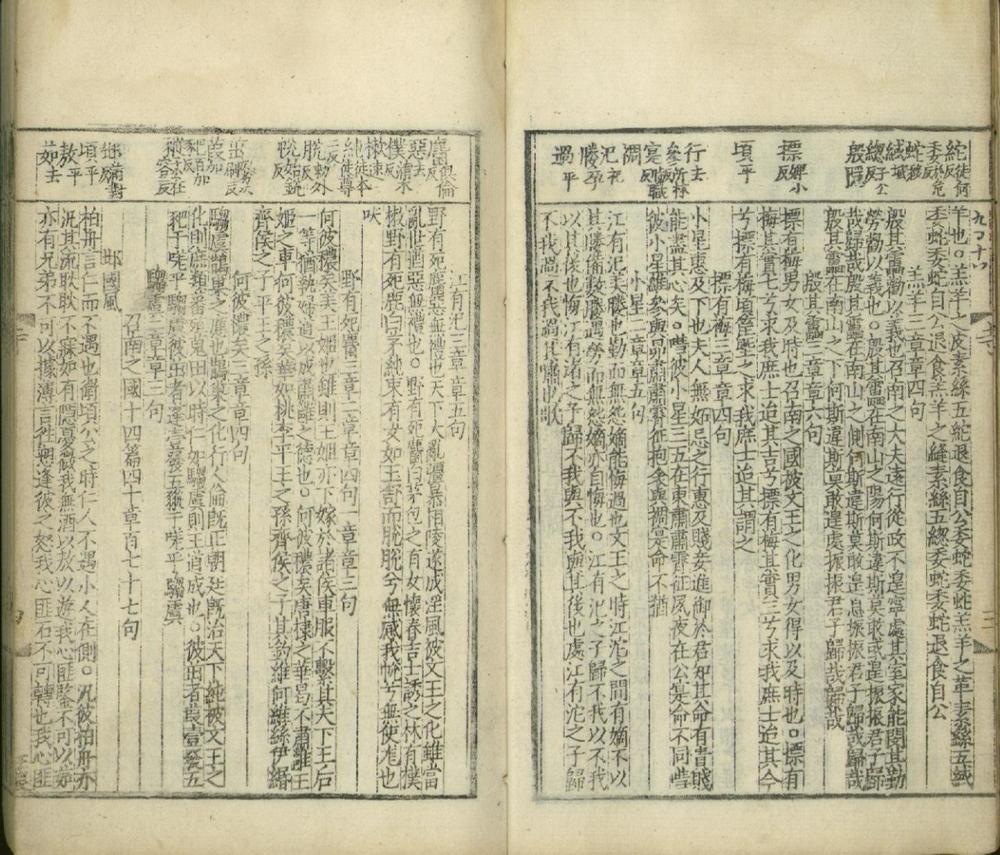 紽徒何反
委於危反
蛇移
緎域
總子公反
殷隱
摽婢小反
頃平
行去
汜祀
媵孕
過平
羊也。羔羊之皮素絲五紽退食自公委蛇委蛇羔羊之革素絲五緎
委蛇委蛇自公退食羔羊之縫素絲五總委蛇委蛇退食自公
羔羊三章章四句
殷其靁勸以義也召南之大夫遠行從政不遑寧處其室家能閔其勤
勞勸以義也。殷其靁在南山之陽何斯違斯莫敢或遑振振君子歸
哉歸哉殷其靁在南山之側何斯違斯莫敢遑息振振君子歸哉歸哉
殷其靁在南山之下何斯違斯莫敢遑處振振君子歸哉歸哉
殷其靁三章章六句
摽有梅男女及時也召南之國被文王之化男女得以及時也。摽有
梅其實七兮求我庶士迨其吉兮摽有梅其實三兮求我庶士迨其今
兮摽有梅頃筐塈之求我庶士迨其謂之
摽有梅三章章四句
小星惠及下也夫人無妬忌之行惠及賤妾進御於君知其命有貴賤
能盡其心矣。嘒彼小星三五在東肅肅宵征夙夜在公寔命不同嘒
彼小星維參與昴肅肅宵征抱衾與裯寔命不猶
小星二章章五句
江有汜美媵也勤而無怨嫡能悔過也文王之時江沱之間有嫡不以
其媵備數媵遇勞而無怨嫡亦自悔也。江有汜之子歸不我以不我
以其後也悔江有渚之子歸不我與不我與其後也處江有沱之子歸
不我過不我過其嘯也歌
麕俱倫反
惡去
頃平
敖平
茹去
江有汜三章章五句
野有死麕惡無禮也天下大亂彊暴相陵遂成淫風被文王之化雖當
亂世猶惡無禮也。野有死麕白茅包之有女懷春吉士誘之林有樸
樕野有死鹿白茅純束有女如玉舒而脫脫兮無感我帨兮無使尨也
吠
野有死麕三章二章章四句一章章三句
何彼襛矣美王姬也雖則王姬亦下嫁於諸侯車服不繫其夫下王后一
等猶執婦道以成肅雝之德也。何彼襛矣唐棣之華曷不肅雝王
姬之車何彼襛矣華如桃李平王之孫齊侯之子其釣維何維絲伊緡
齊侯之子平王之孫
何彼襛矣三章章四句
騶虞鵲巢之應也鵲巢之化行人倫旣正朝廷旣治天下純被文王之
化則庶類蕃殖蒐田以時仁如騶虞則王道成也。彼茁者葭壹發五
豝于嗟乎騶虞彼茁者蓬壹發五豵于嗟乎騶虞
騶虞二章章三句
召南之國十四篇四十章百七十七句
邶國風
柏舟言仁而不遇也衞頃公之時仁人不遇小人在側。汎彼柏舟亦
汎其流耿耿不寐如有隱憂微我無酒以敖以遊我心匪鑒不可以茹
亦有兄弟不可以據薄言往愬逢彼之怒我心匪石不可轉也我心匪